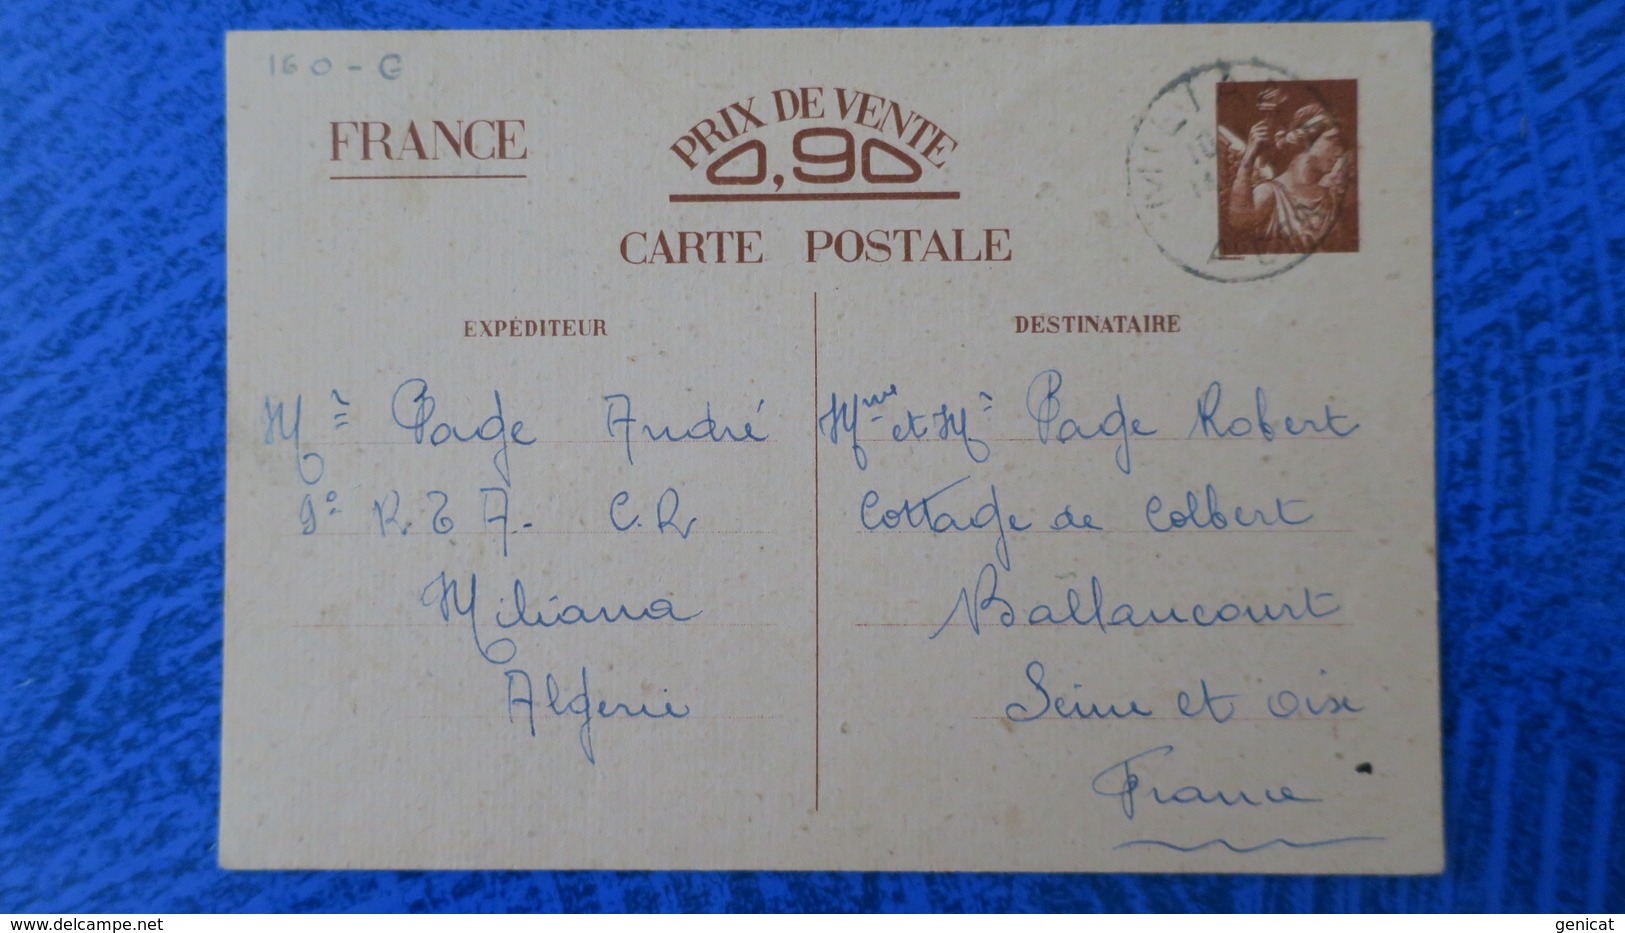 160-G
FRANCE
PRIX DE VENTE
0,90
CARTE POSTALE
EXPÉDITEUR
Mr Page André
9e R.T.A. C.R
Miliana
Algerie
DESTINATAIRE
Mme et Mr Page Robert
Cottage de Colbert
Ballancourt
Seine et oise
France
www.delcampe.net
genicat